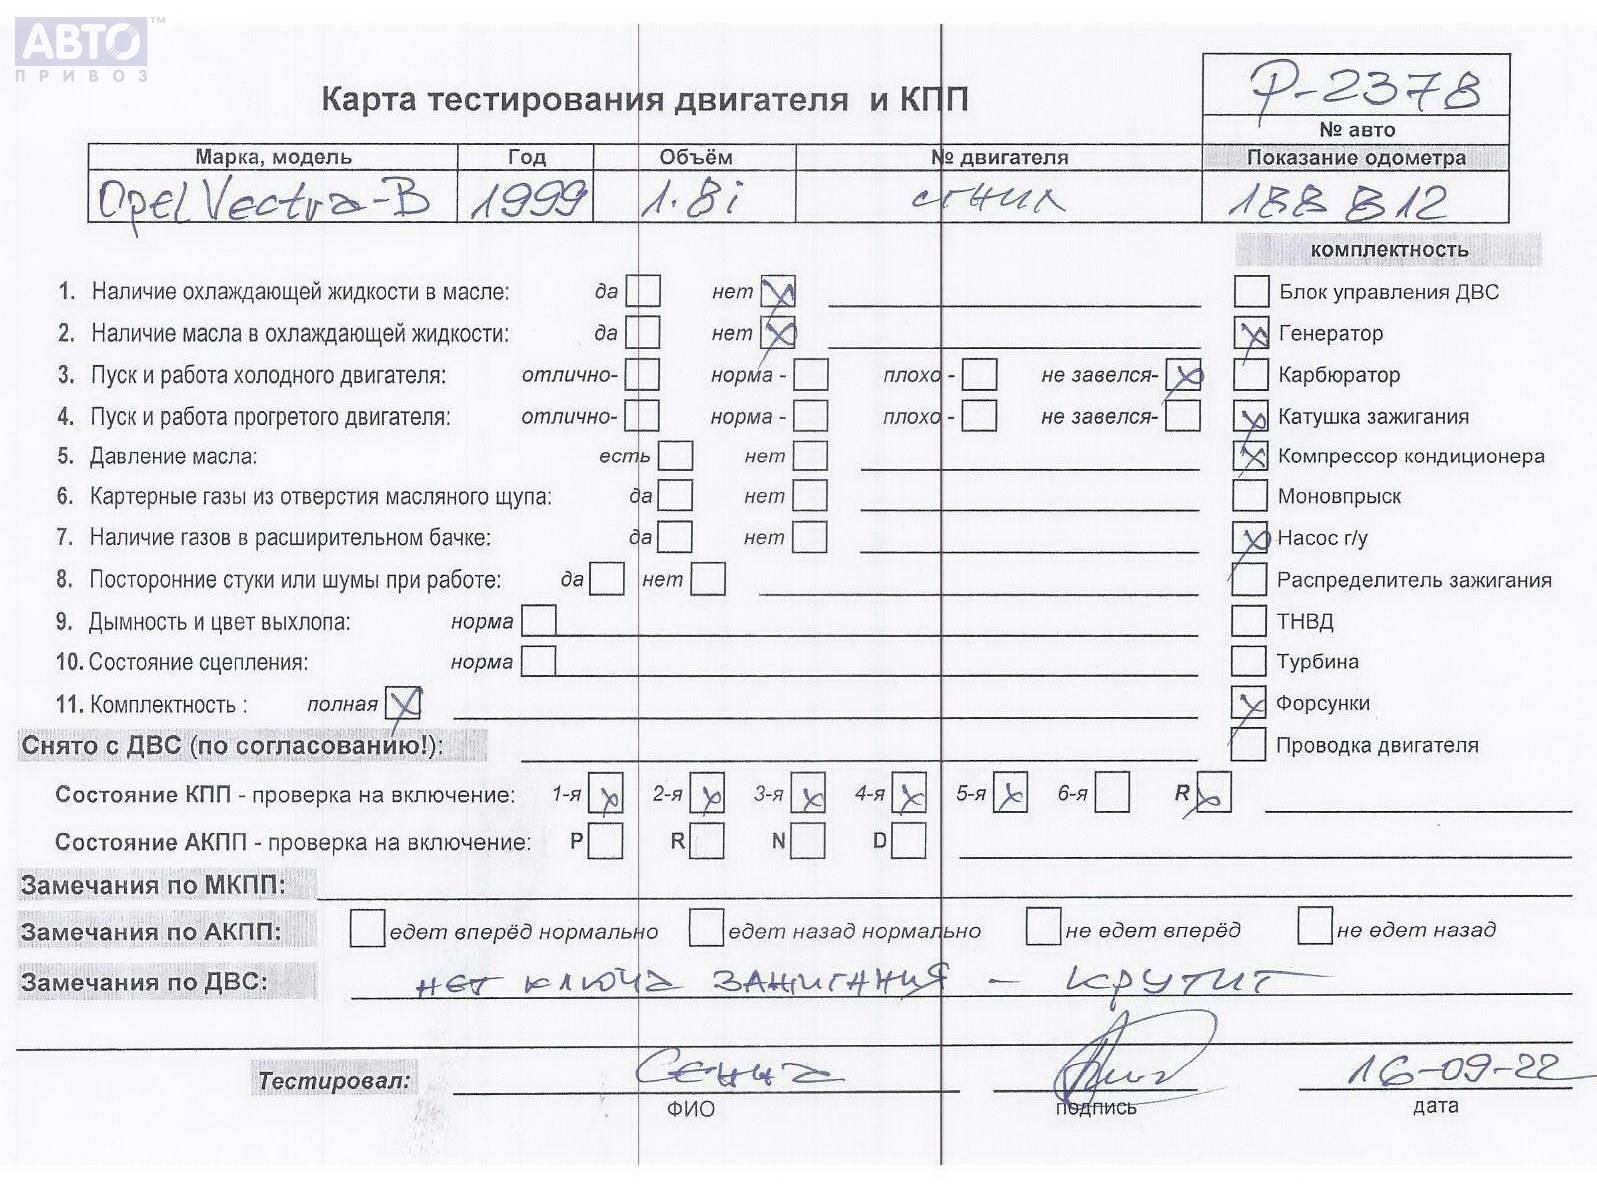 АВТО™
ПРИВОЗ
Карта тестирования двигателя и КПП
Р-2378
№ авто
Марка, модель Год Объём № двигателя Показание одометра
Opel Vectra-B 1999 1.8i сгнил 188 812
комплектность
1. Наличие охлаждающей жидкости в масле: да нет Блок управления ДВС
2. Наличие масла в охлаждающей жидкости: да нет Генератор
3. Пуск и работа холодного двигателя: отлично- норма - плохо - не завелся- Карбюратор
4. Пуск и работа прогретого двигателя: отлично- норма - плохо - не завелся- Катушка зажигания
5. Давление масла: есть нет Компрессор кондиционера
6. Картерные газы из отверстия масляного щупа: да нет Моновпрыск
7. Наличие газов в расширительном бачке: да нет Насос г/у
8. Посторонние стуки или шумы при работе: да нет Распределитель зажигания
9. Дымность и цвет выхлопа: норма ТНВД
10. Состояние сцепления: норма Турбина
11. Комплектность : полная Форсунки
Снято с ДВС (по согласованию!): Проводка двигателя
Состояние КПП - проверка на включение: 1-я 2-я 3-я 4-я 5-я 6-я R
Состояние АКПП - проверка на включение: P R N D
Замечания по МКПП:
Замечания по АКПП: едет вперёд нормально едет назад нормально не едет вперёд не едет назад
Замечания по ДВС: нет ключа зажигания - крутит
Тестировал: 16-09-22
ФИО подпись дата